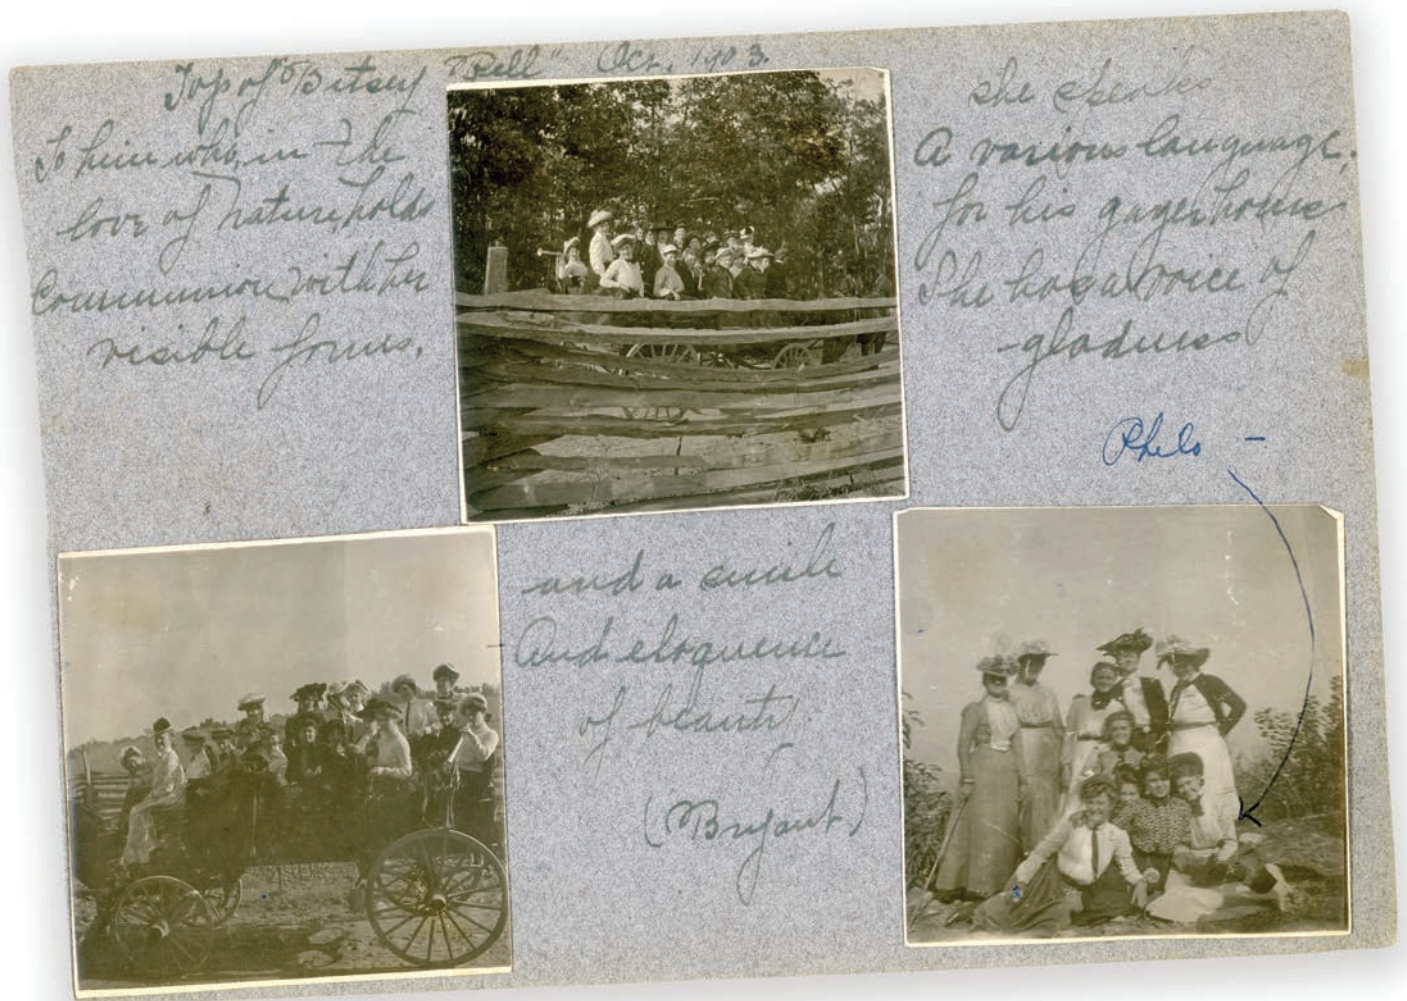 Top of "Betsy Bell" Oct. 1903.
To him who in the
love of Nature, holds
Communion with her
visible forms,
she speaks
A various language,
for his gayer hours
She has a voice of
gladness
Philo -
and a smile
And eloquence
of beauty.
(Bryant)